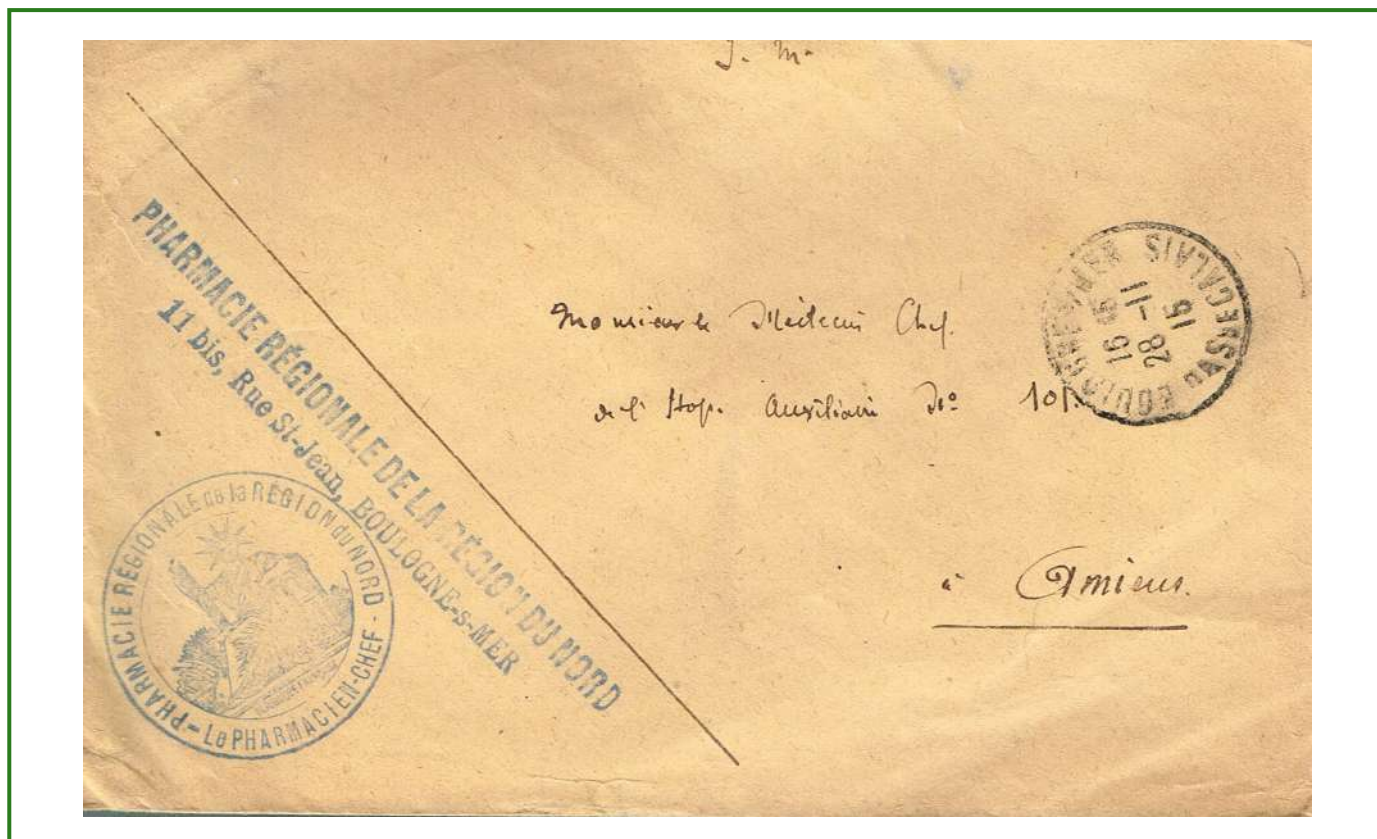 J. M.
PHARMACIE RÉGIONALE DE LA RÉGION DU NORD
11 bis, Rue St-Jean, BOULOGNE-s-MER
PHARMACIE RÉGIONALE de la RÉGION du NORD
- Le PHARMACIEN-CHEF -
Monsieur le Médecin Chef
de l' Hop. Auxiliaire No 101
à Amiens.
BOULOGNE-S-MER PAS DE CALAIS
16 45
28 -11
15